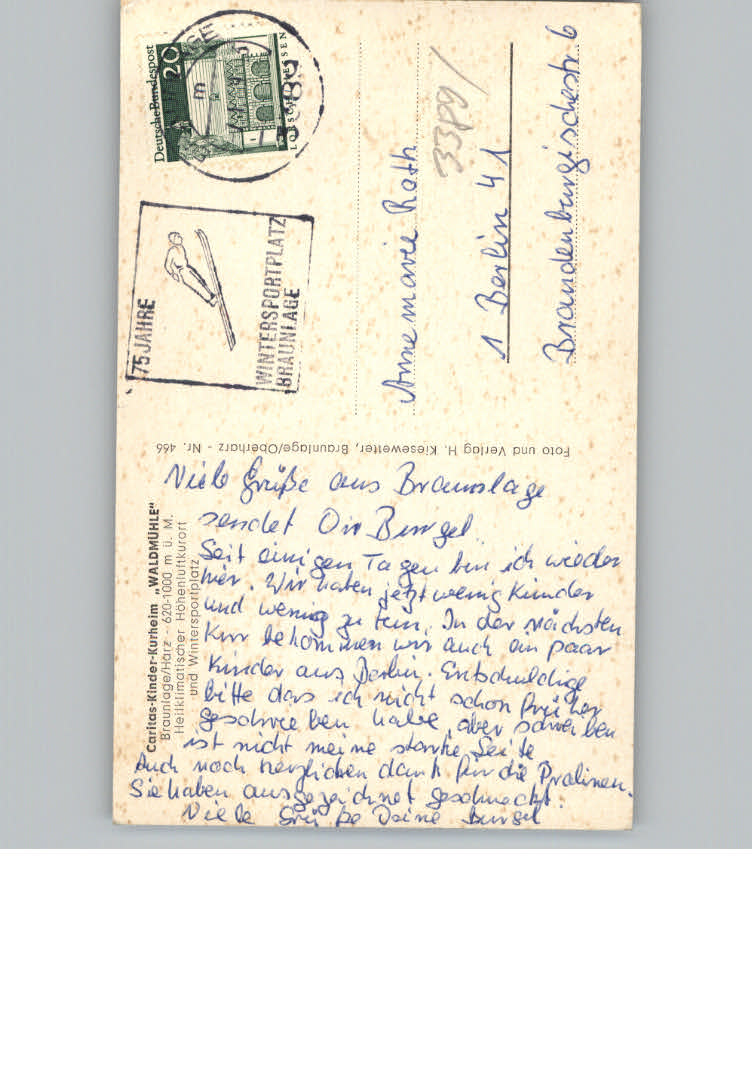 Deutsche Bundespost
20
LORSCH HESSEN
75 JAHRE
WINTERSPORTPLATZ
BRAUNLAGE
Annemarie Rath
33pg/
1 Berlin 41
Brandenburgischestr. 6
Foto und Verlag H. Kiesewetter, Braunlage/Oberharz - Nr. 466
Caritas-Kinder-Kurheim „WALDMÜHLE"
Braunlage/Harz - 620-1000 m ü. M.
Heilklimatischer Höhenluftkurort
und Wintersportplatz
Viele Grüße aus Braunlage
sendet Dir Burgel.
Seit einigen Tagen bin ich wieder
hier. Wir haben jetzt wenig Kinder
und wenig zu tun. In der nächsten
Kur bekommen wir auch ein paar
Kinder aus Berlin. Entschuldige
bitte das ich nicht schon früher
geschrieben habe, aber schreiben
ist nicht meine starke Seite
Auch noch herzlichen dank für die Pralinen.
Sie haben ausgezeichnet geschmeckt.
Viele Grüße Deine Burgel